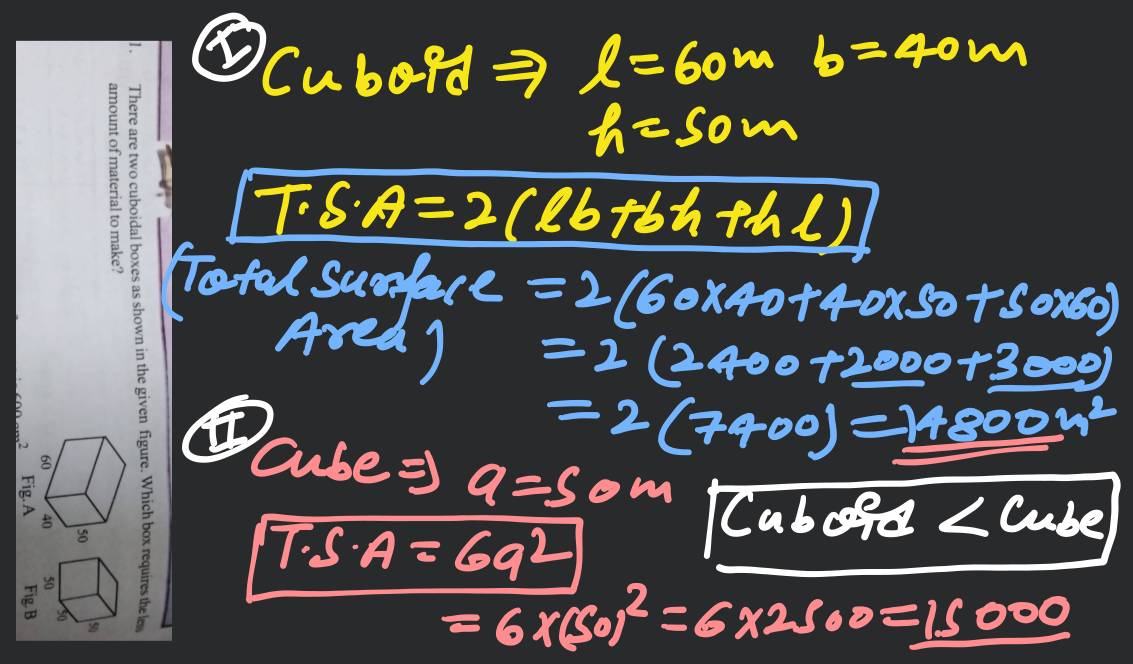 1. There are two cuboidal boxes as shown in the given figure. Which box requires the less
amount of material to make?
60 40 50
Fig.A
50 50 50
Fig.B
I Cuboid ⇒ l=60m b=40m
h=50m
T.S.A=2(lb+bh+hl)
(Total Surface Area)
=2(60×40+40×50+50×60)
=2(2400+2000+3000)
=2(7400)=14800m²
II Cube ⇒ a=50m
T.S.A=6a²
=6×(50)²=6×2500=15000
Cuboid < Cube